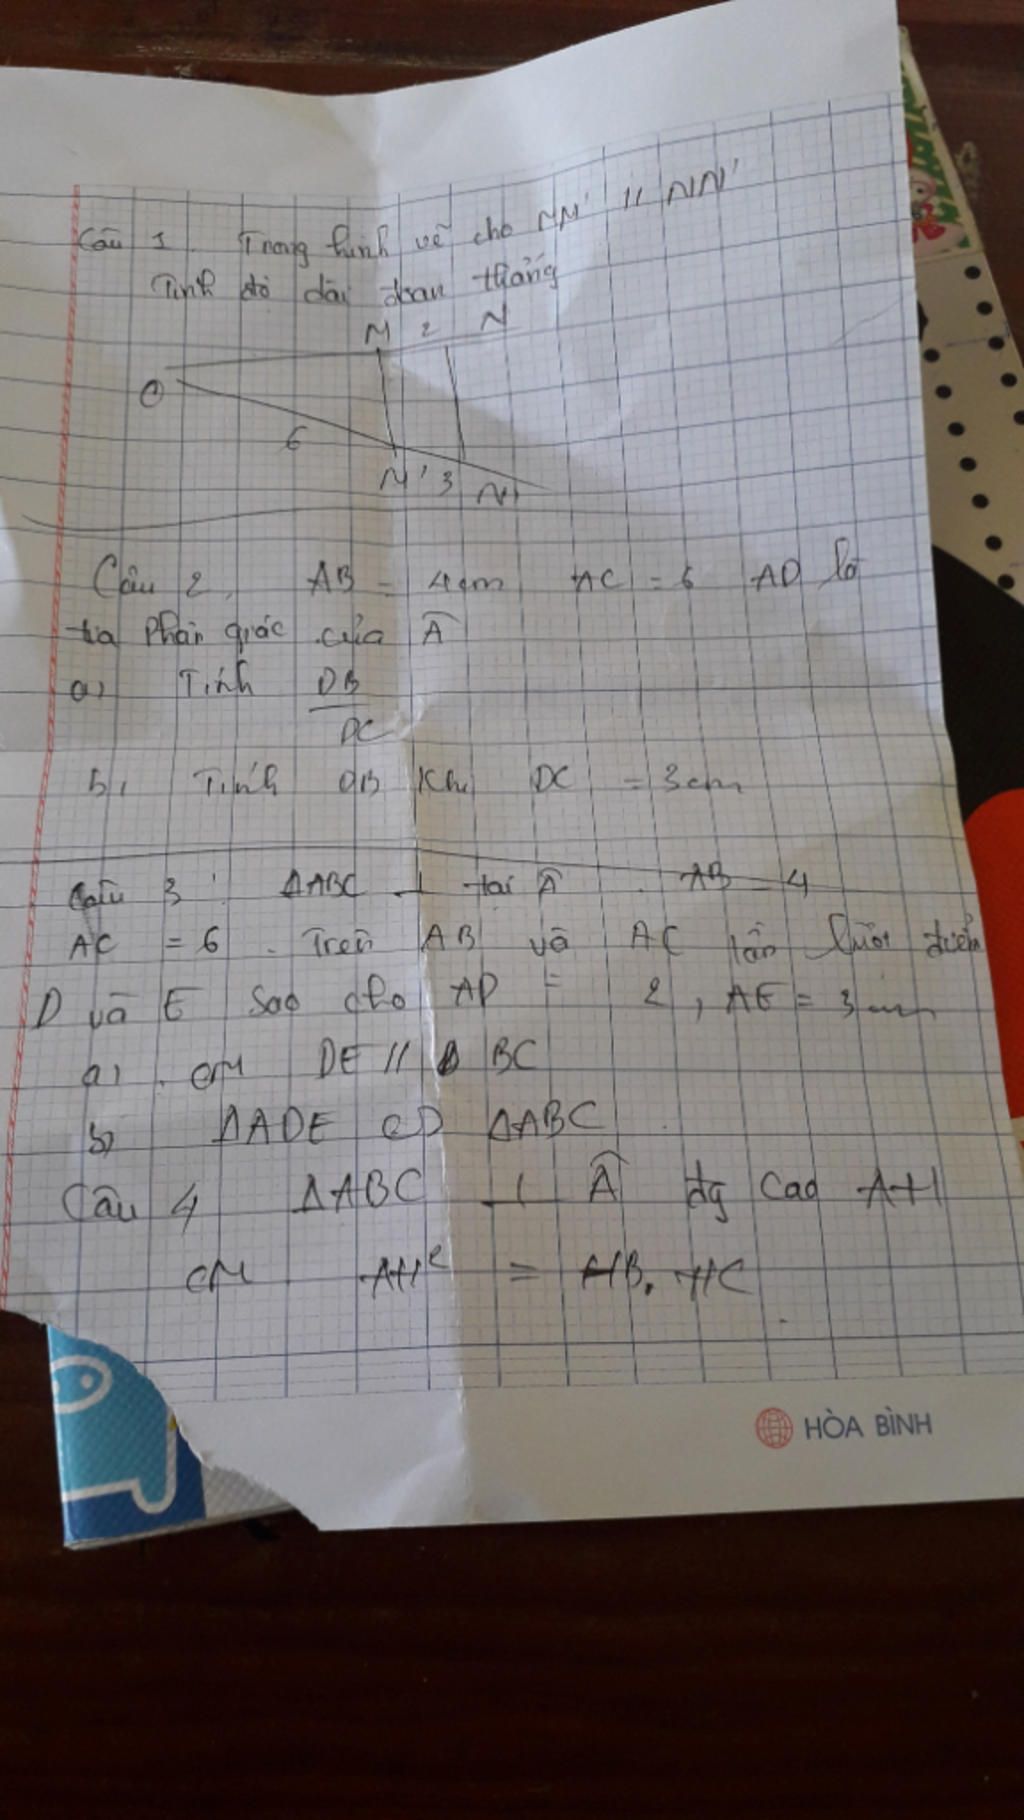 Câu 1. Trong hình vẽ cho MM' // NN'
Tính độ dài đoạn thẳng
M 2 N
O
6
M' 3 N'
Câu 2, AB = 4cm AC = 6 AD là
tia Phân giác của Â
a, Tính DB/DC
b, Tính DB Khi DC = 3cm
Câu 3: ΔABC ⊥ tại Â. AB = 4
AC = 6. Trên AB và AC lần lượt điểm
D và E sao cho AD = 2, AE = 3cm
a, CM DE // BC
b, ΔADE ∽ ΔABC
Câu 4 ΔABC ⊥ Â đg cao AH
CM AH² = HB. HC
HÒA BÌNH